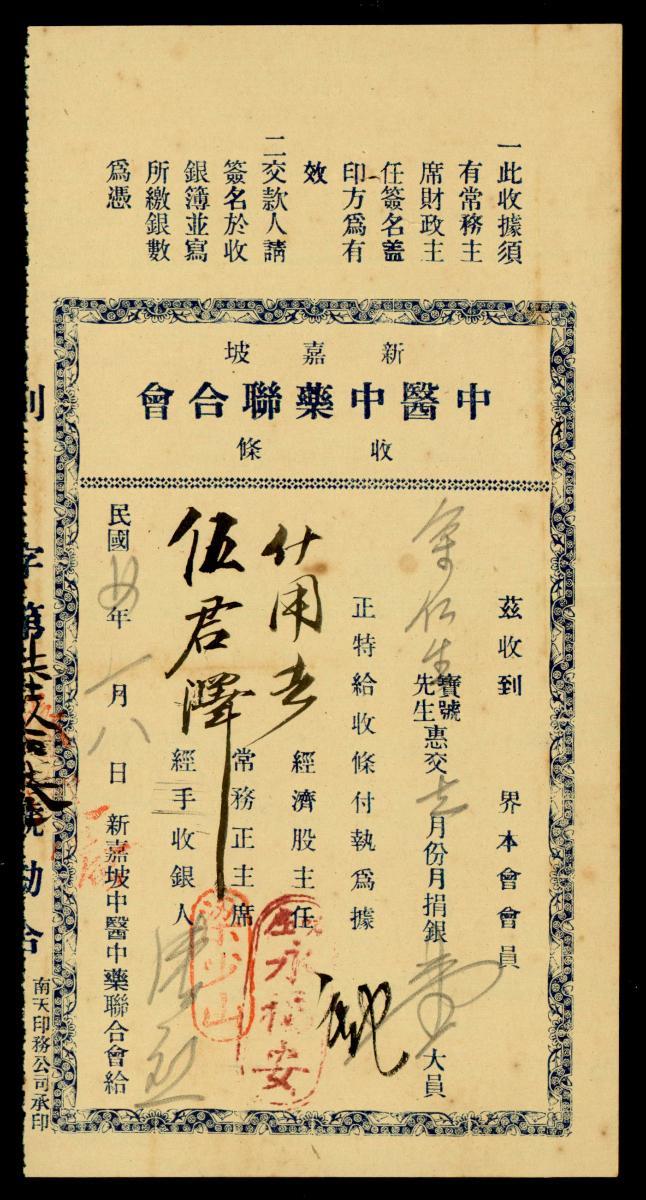 一此收據須
有常務主
席財政主
任簽名盖
印方爲有
效
二交款人請
簽名於收
銀簿並寫
所繳銀數
爲憑
新嘉坡
中醫中藥聯合會
收條
茲收到 界本會會員
余仁生寶號先生惠交 月份月捐銀 大員
正特給收條付執爲據
經濟股主任
常務正主席
伍君澤
經手收銀人
梁少山
永福安
民國 年 一月八日 新嘉坡中醫中藥聯合會給
字第
南天印務公司承印